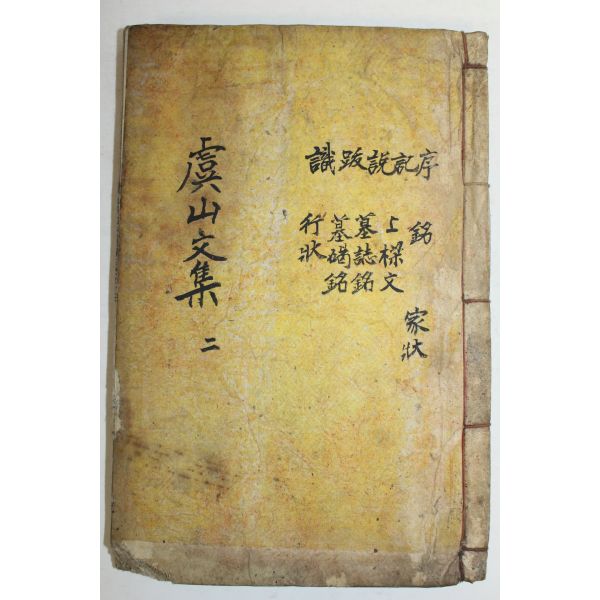 序記說跋識
銘
上樑文
墓誌銘
墓碣銘
行狀
家狀
虞山文集 二